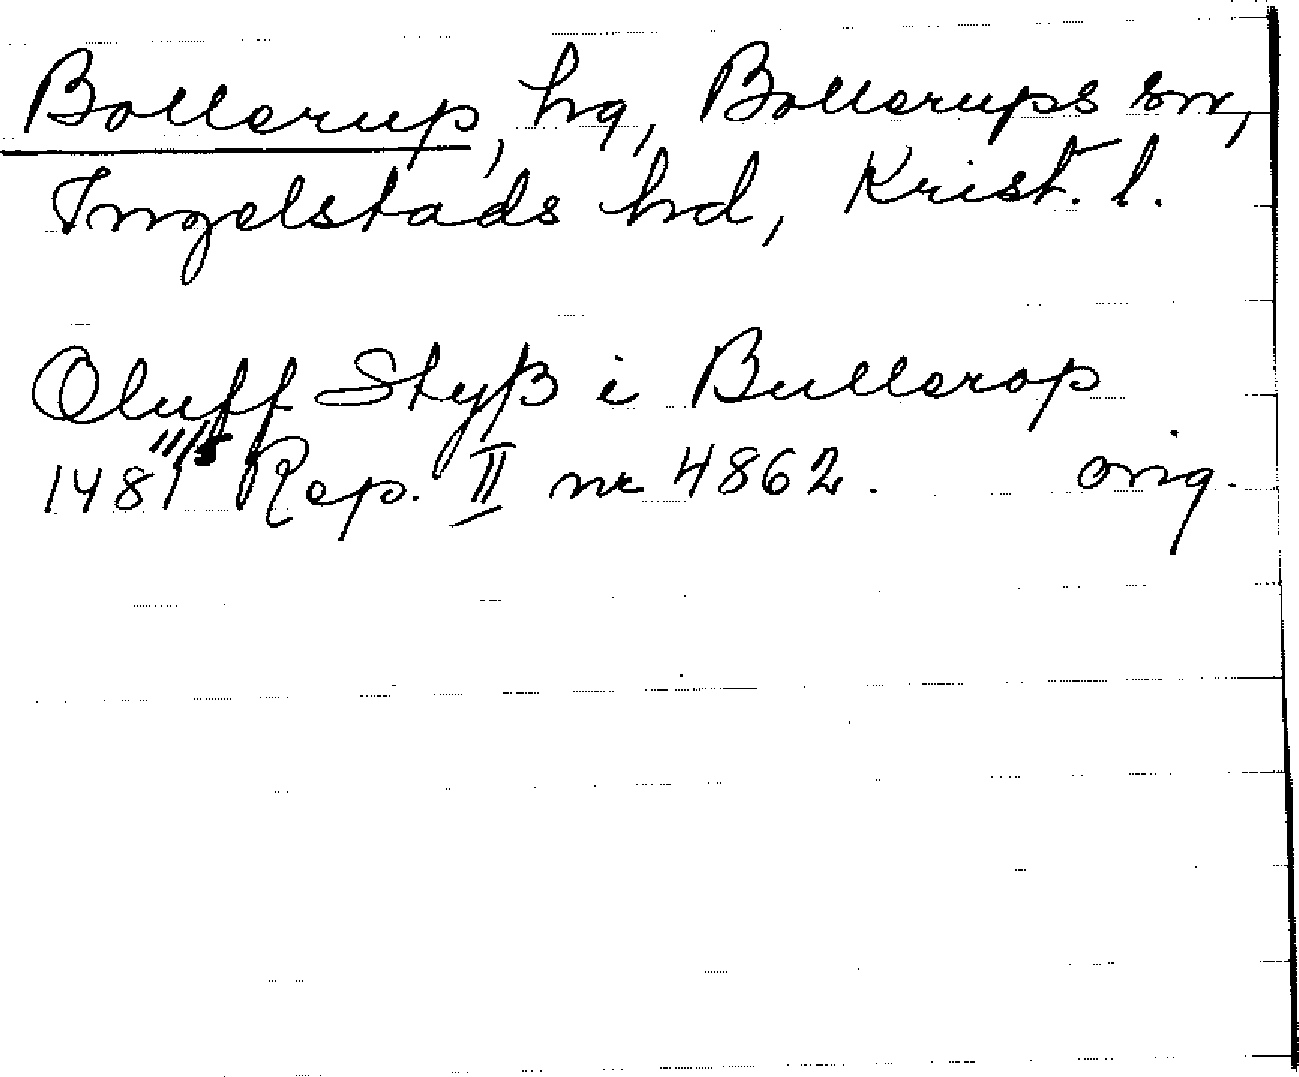 Bollerup, hg, Bollerups sn,
Ingelstads hd, Krist. l.
Oluff Styß i Bullerop
1481 11/5 Rep. II nr 4862. orig.